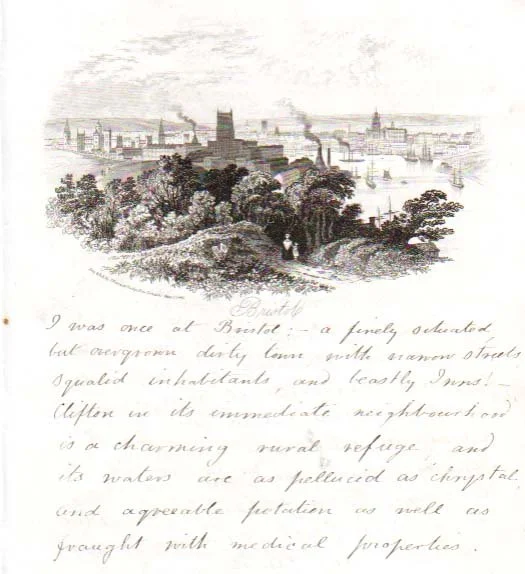 Bristol
I was once at Bristol :- a finely situated
but overgrown dirty town with narrow streets,
squalid inhabitants, and beastly Inns! -
Clifton in its immediate neighbourhood
is a charming rural refuge, and
its waters are as pellucid as chrystal,
and agreeable potation as well as
fraught with medical properties.